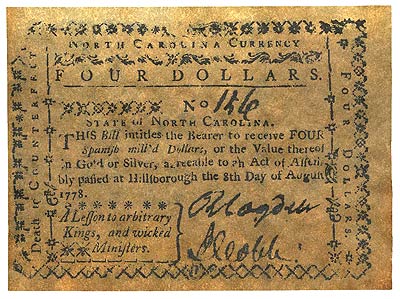 NORTH CAROLINA CURRENCY
FOUR DOLLARS.
No 156
STATE of NORTH CAROLINA.
THIS Bill intitles the Bearer to receive FOUR
Spanish mill'd Dollars, or the Value thereof
in Gold or Silver, agreeable to an Act of Assem
bly passed at Hillsborough the 8th Day of August
1778.
A Lesson to arbitrary
Kings, and wicked
Ministers.
J Cobb
Death to Counterfeit
Four Dollars.